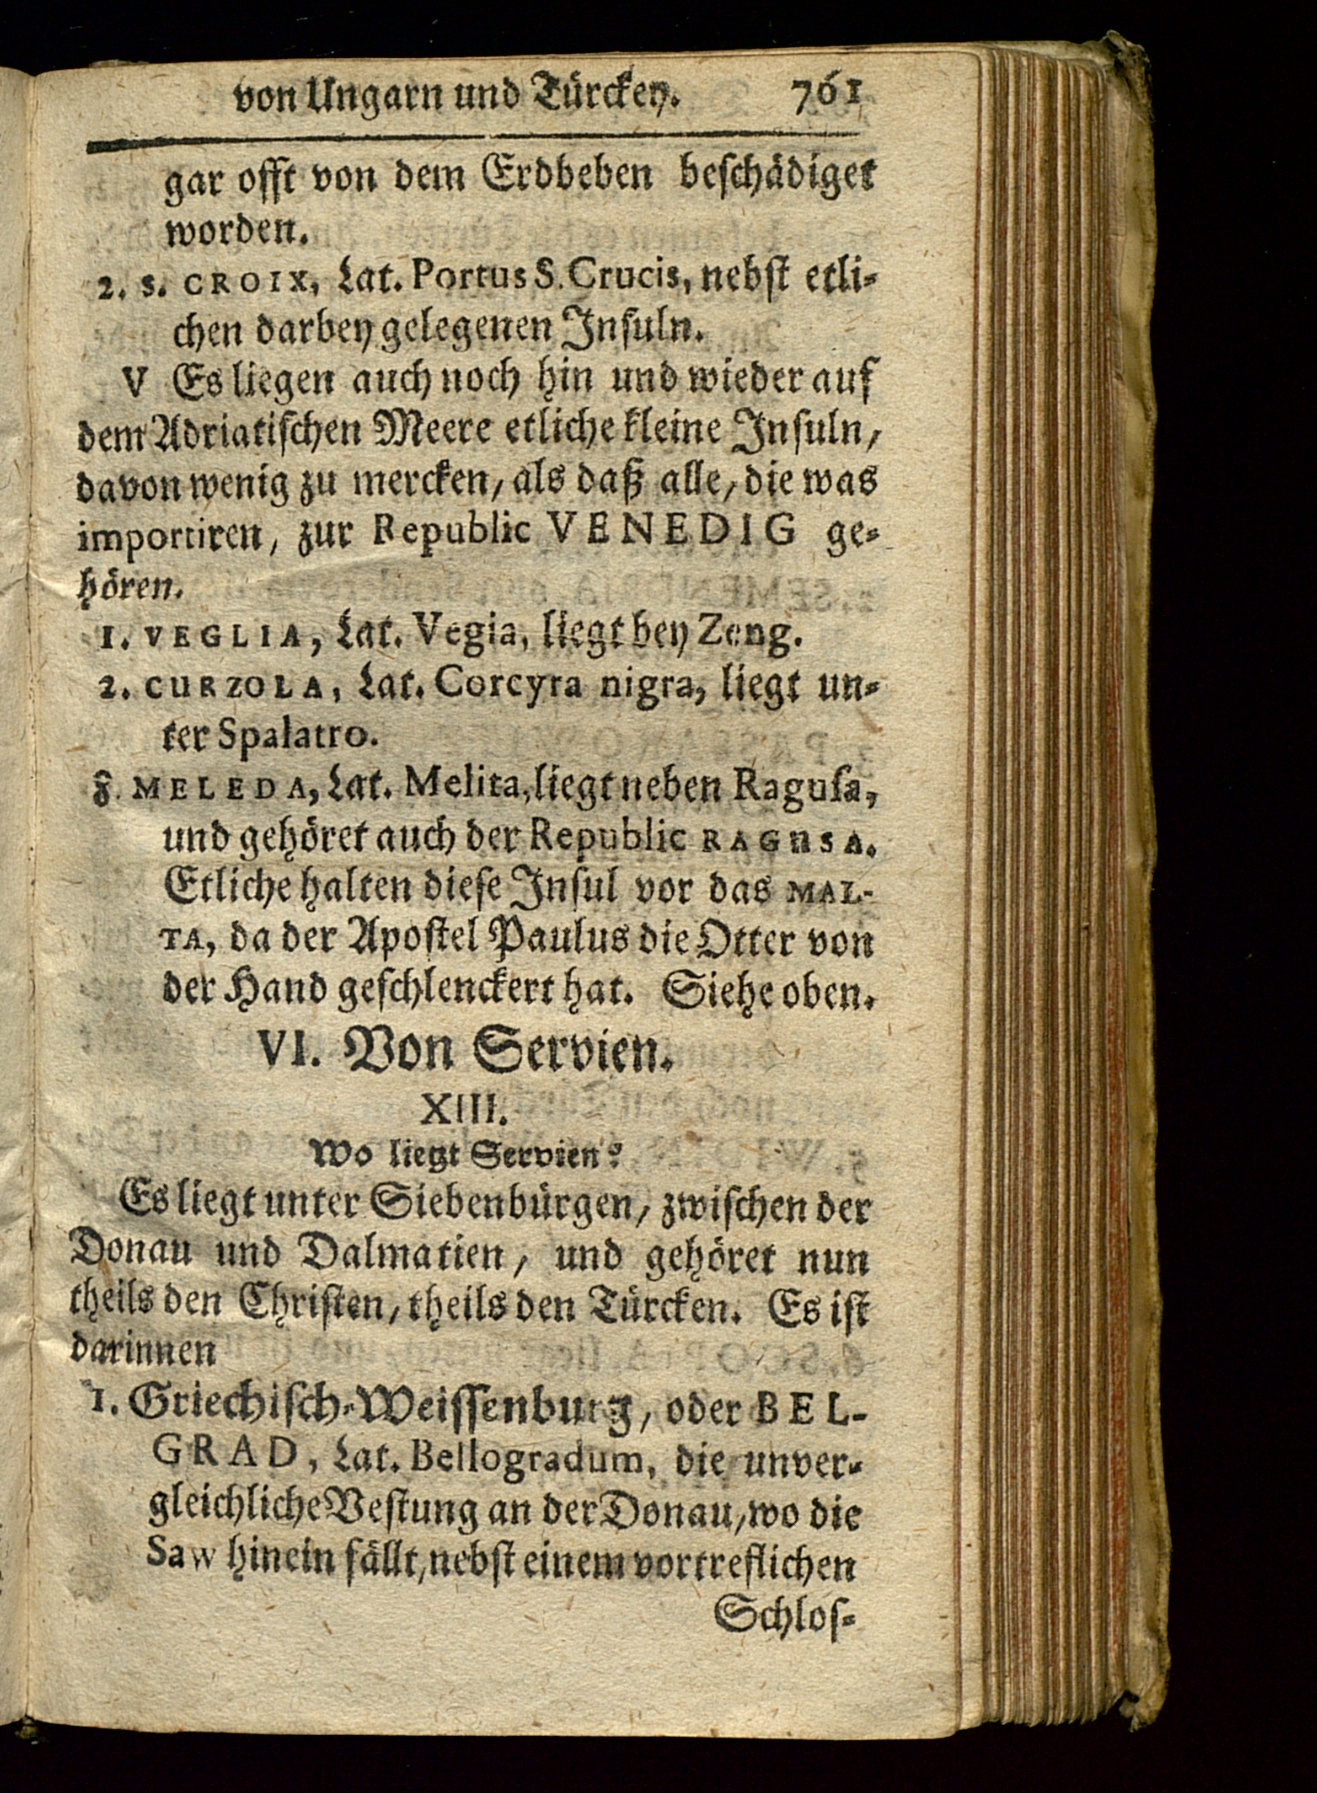 von Ungarn und Türckey. 761
gar offt von dem Erdbeben beschädiget
worden.
2. S. CROIX, Lat. Portus S. Crucis, nebst etli-
chen darbey gelegenen Insuln.
V Es liegen auch noch hin und wieder auf
dem Adriatischen Meere etliche kleine Insuln,
davon wenig zu mercken, als daß alle, die was
importiren, zur Republic VENEDIG ge-
hören.
1. VEGLIA, Lat. Vegia, liegt bey Zeng.
2. CURZOLA, Lat. Corcyra nigra, liegt un-
ter Spalatro.
3. MELEDA, Lat. Melita, liegt neben Ragusa,
und gehöret auch der Republic RAGUSA.
Etliche halten diese Insul vor das MAL-
TA, da der Apostel Paulus die Otter von
der Hand geschlenckert hat. Siehe oben.
VI. Von Servien.
XIII.
Wo liegt Servien?
Es liegt unter Siebenbürgen, zwischen der
Donau und Dalmatien, und gehöret nun
theils den Christen, theils den Türcken. Es ist
darinnen
1. Griechisch-Weissenburg, oder BEL-
GRAD, Lat. Bellogradum, die unver-
gleichliche Vestung an der Donau, wo die
Saw hinein fällt, nebst einem vortreflichen
Schlos-